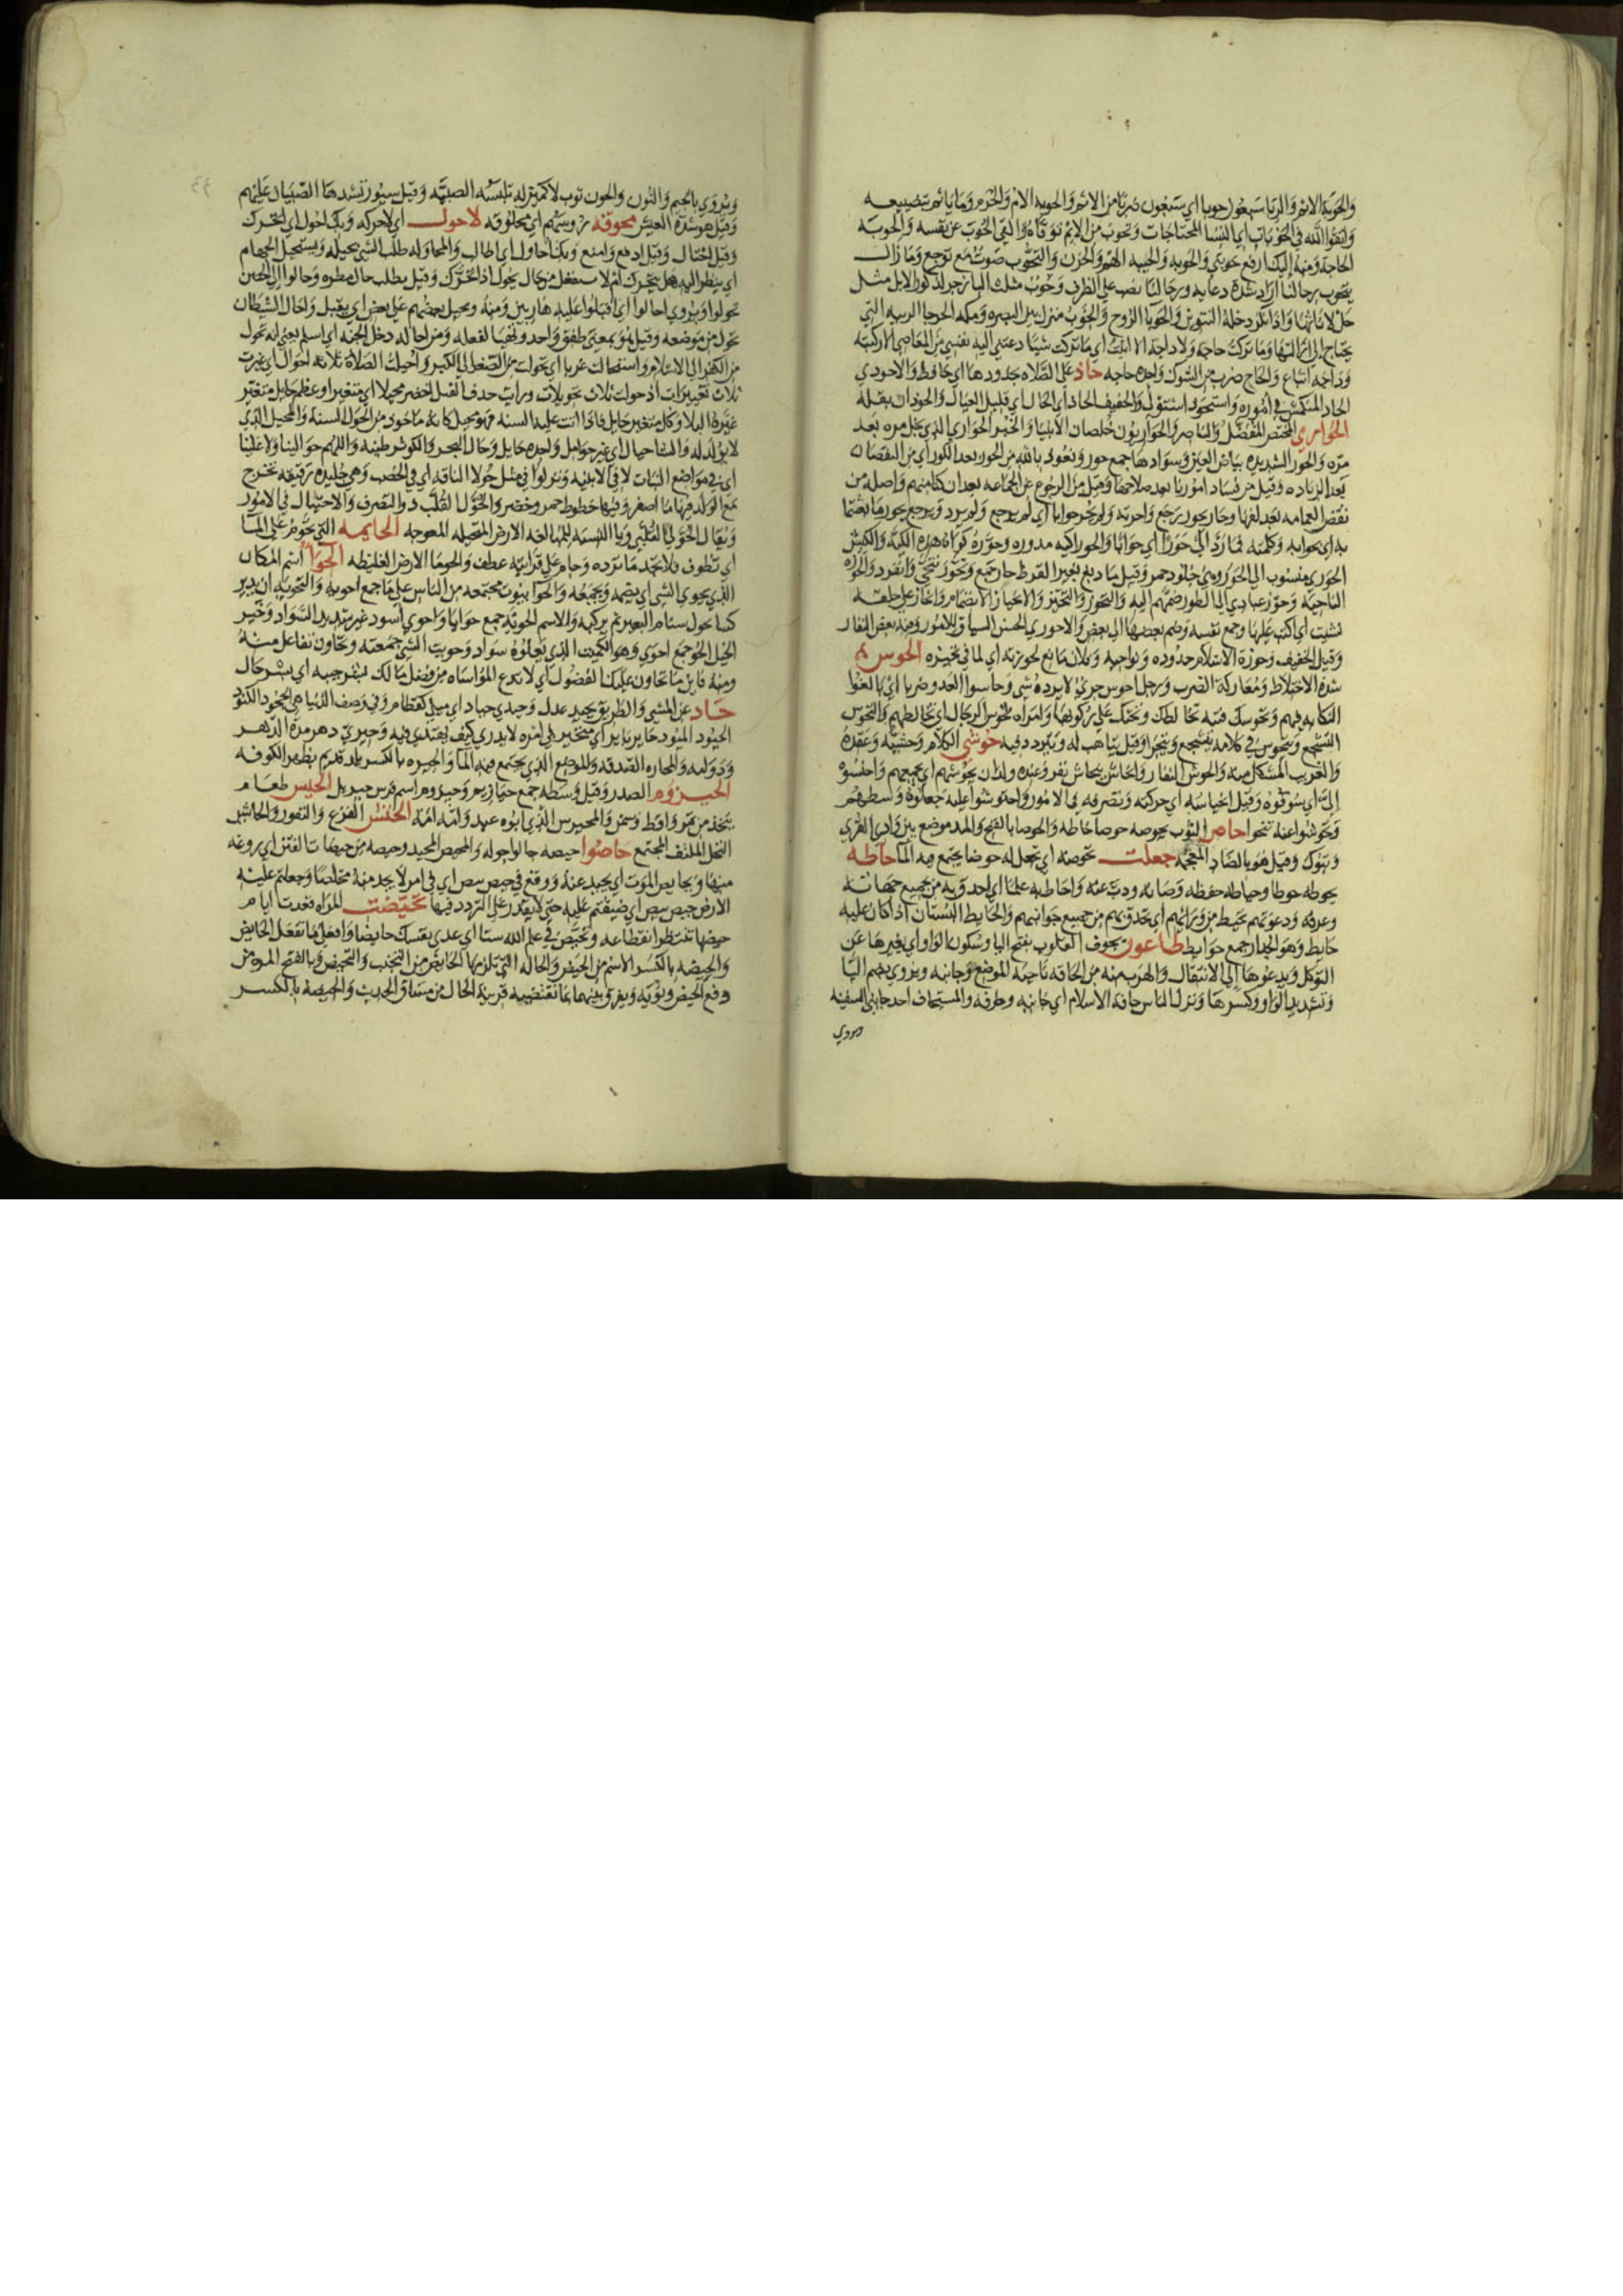 والحوبة الاثم والربا سبعون حوبا اي سبعون ضربا من الاثم والحوبه الام والحرم وما ياثم بتضييعه
واتقوا الله في الحوبات اي النسا المحتاجات وتحوب من الاثم توقاه والقي الحوب عن نفسه والحوبه
الحاجه ومنه اليك ارفع حوبتي والحوبه والحيبه الهم والحزن والتحوب صوت مع توجع وما زال
يتحوب رحالنا اراد شدة دعايه ورحالنا نصب علي الظرف وحوب مثلث البا زجر لذكور الابل مثل
حل لاناثها واذا نكر دخله التنوين والحوبا الروح والحوب منزل بين البصره ومكه
يحتاج الي ازالتها وما تركت حاجه ولا داجه الا اتيت اي ما تركت شيا دعتني اليه نفسي من المعاصي الا ركبته
وداجه اتباع والحاج ضرب من الشوك واحده حاجه حاذ علي الصلاه بحدودها اي حافظ والاحوذي
الحاد المنكمش في اموره واستحوذ استولي والخفيف الحاذ اي الحال اي قليل العيال والحوذان بقله
الحواري المختص المفضل والناصر والحواريون خلصان الانبيا والخبز الحواري الذي نخل مره بعد
مره والحور الشديده بياض العين وسوادها جمع حور ونعوذ بالله من الحور بعد الكور اي من النقصان
بعد الزياده وقيل من فساد امورنا بعد صلاحها وقيل من الرجوع عن الجماعه بعد ان كنا منهم واصله من
نقض العمامه بعد لفها وحار يحور رجع واحرته ولم يحر جوابا اي لم يرجع ولم يرد ويرجع بحور ما بعثتما
به اي بجوابه وكلمته فما رد الي حورا اي جوابا والحورا كيه مدوره وحوره كواه هذه الكيه والكبش
الحوري منسوب الي الحور وهي جلود حمر وقيل ما دبغ بغير القرظ حاز جمع وتحوز تنحي وانفرد والحوزه
الناحيه وحوز عبادي الي الطور ضمهم اليه والتحوز والتحيز والانحياز الانضمام وانحاز علي حلقه
نشبت اي اكب عليها وجمع نفسه وضم بعضها الي بعض والاحوزي الحسن السياق للامور وفيه بعض النفار
وقيل الخفيف وحوزة الاسلام حدوده ونواحيه وفلان مانع لحوزته اي لما في حيزه الحوس
شدة الاختلاط ومداركة الضرب ورجل احوس جري لا يرده شي وحاسوا العدو ضربا اي بالغوا
النكايه فيهم وتحوسك فتنه تخالطك وتحثك علي ركوبها وامراه تحوس الرجال اي تخالطهم والتحوس
التشجع ويتحوس في كلامه يتشجع ويتجرا وقيل يتاهب له ويتردد فيه حوشي الكلام وحشيه وعقده
والغريب المشكل منه والحوش النفار وانحاش ينحاش نفر وعنده ولدان يحوشهم اي يجمعهم واحتشوه
الي اي سوقوه وقيل انحياشه اي حركته وتصرفه في الامور واحتوشوا عليه جعلوه وسطهم
وتحوشوا عنه تنحوا حاص الثوب يحوصه حوصا خاطه والحوصا بالفتح والمد موضع بين وادي القري
وتبوك وقيل هو بالضاد المعجمه جعلت تحوضه اي تجعل له حوضا يجتمع فيه الما حاطه
يحوطه حوطا وحياطه حفظه وصانه وذب عنه واحاط به علما اي احدق به من جميع جهاته
وعرفه ودعوتهم تحيط من ورائهم اي تحدق بهم من جميع جوانبهم والحايط البستان اذا كان عليه
حايط وهو الجدار جمع حوايط طاعون يحوف القلوب بفتح اليا وسكون الواو اي يغيرها عن
التوكل ويدعوها الي الانتقال والهرب منه من الحافه ناحية الموضع وجانبه ويروي بضم اليا
وتشديد الواو وكسرها ونزل الناس حافة الاسلام اي جانبه وطرفه والمستحاف احد جانبي السفينه
ويروي
ويروي بالجيم والنون والحوف ثوب لا كمين له تلبسه الصبيه وقيل سيور تشدها الصبيان عليهم
وقيل هو شدة العيش محوقه روسهم اي محلوقه لا حول اي لا حركه وبك احول اي اتحرك
وقيل احتال وقيل ادفع وامنع وبك احاول اي اطالب والمحاوله طلب الشي بحيله ونستحيل الجهام
اي ينظر اليه هل يتحرك ام لا نستفعل من حال يحول اذا تحرك وقيل نطلب حال مطره وحالوا الي الحصن
تحولوا ويروي احالوا اي اقبلوا عليه هاربين ومنه ويحيل بعضهم علي بعض اي يقبل واحال الشيطان
تحول من موضعه وقيل هو بمعني طفق واخذ وتهيا لفعله ومن احال دخل الجنه اي اسلم يعني انه تحول
من الكفر الي الاسلام واستحالت غربا اي تحولت من الصغر الي الكبر واحيلت الصلاة ثلاثه احوال اي غيرت
ثلاث تغييرات او حولت ثلاث تحويلات ورايت خذق الفيل اخضر محيلا اي متغيرا وعظم حايل متغير
غيره البلا وكل متغير حايل فاذا اتت عليه السنه فهو محيل كانه ماخوذ من الحول السنه والمحيل الذي
لا يولد له والشا حيال اي غير حوامل واحده حايل وحال البحر والكوثر طينه واللهم حوالينا ولا علينا
اي في مواضع النبات لا في الابنيه ونزلوا في مثل حولا الناقه اي في الخصب وهي جليده رقيقه تخرج
مع الولد فيها ما اصفر وفيها خطوط حمر وخضر والحول القلب ذو التصرف والاحتيال في الامور
ويقال الحولي القلبي ويا النسبه للمبالغه الارض المحيله المعوجه الحايمه التي تحوم علي الما
اي تطوف فلا تجد ما ترده وحام علي قرابته عطف والحومه الارض الغليظه الحوا اسم المكان
الذي يحوي الشي اي يضمه ويجمعه والحوا بيوت مجتمعه من الناس علي ما جمع احويه والتحويه ان يدير
كسا حول سنام البعير ثم يركبه والاسم الحويه جمع حوايا واحوي اسود غير شديد السواد وخير
الخيل الحو جمع احوي وهو الكميت الذي يعلوه سواد وحويت الشي جمعته وتحاوت تفاعل منه
ومنه فاين ما تحاوت عليك الفضول اي لا تدع المواساه من فضل مالك
حاد عن الشي والطريق يحيد عدل وحيدي حياد اي ميلي كقطام وفي وصف الدنيا هي الجحود الكنود
الحيود الميود حاير باير اي متحير في امره لا يدري كيف يهتدي فيه وحيري دهر مدة الدهر
ودوامه والمحاره الصدفه والموضع الذي يجتمع فيه الما والحيره بالكسر بلد قديم بظهر الكوفه
الحيزوم الصدر وقيل وسطه جمع حيازيم وحيزوم اسم فرس جبريل الحيس طعام
يتخذ من تمر واقط وسمن والمحيوس الذي ابوه عبد وامه امة الحيش الفزع والنفور والحايش
النخل الملتف المجتمع حاصوا حيصه جالوا جوله والمحيص المحيد وحيصه من حيصات الفتن اي روغه
منها ويحايص الموت اي يحيد عنه ووقع في حيص بيص اي في امر لا يجد منه مخلصا وجعلتم عليه
الارض حيص بيص اي ضيقتم عليه حتي لا يقدر علي التردد فيها تحيضت المراه قعدت ايام
حيضها تنتظر انقطاعه وتحيضي في علم الله ستا اي عدي نفسك حايضا وافعلي ما تفعل الحايض
والحيضه بالكسر الاسم من الحيض والحاله التي تلزمها الحايض من التجنب والتحيض وبالفتح المره من
دفع الحيض ونوبه ويفرق بينهما بما تقتضيه قرينة الحال من مساق الحديث والحيضه بالكسر